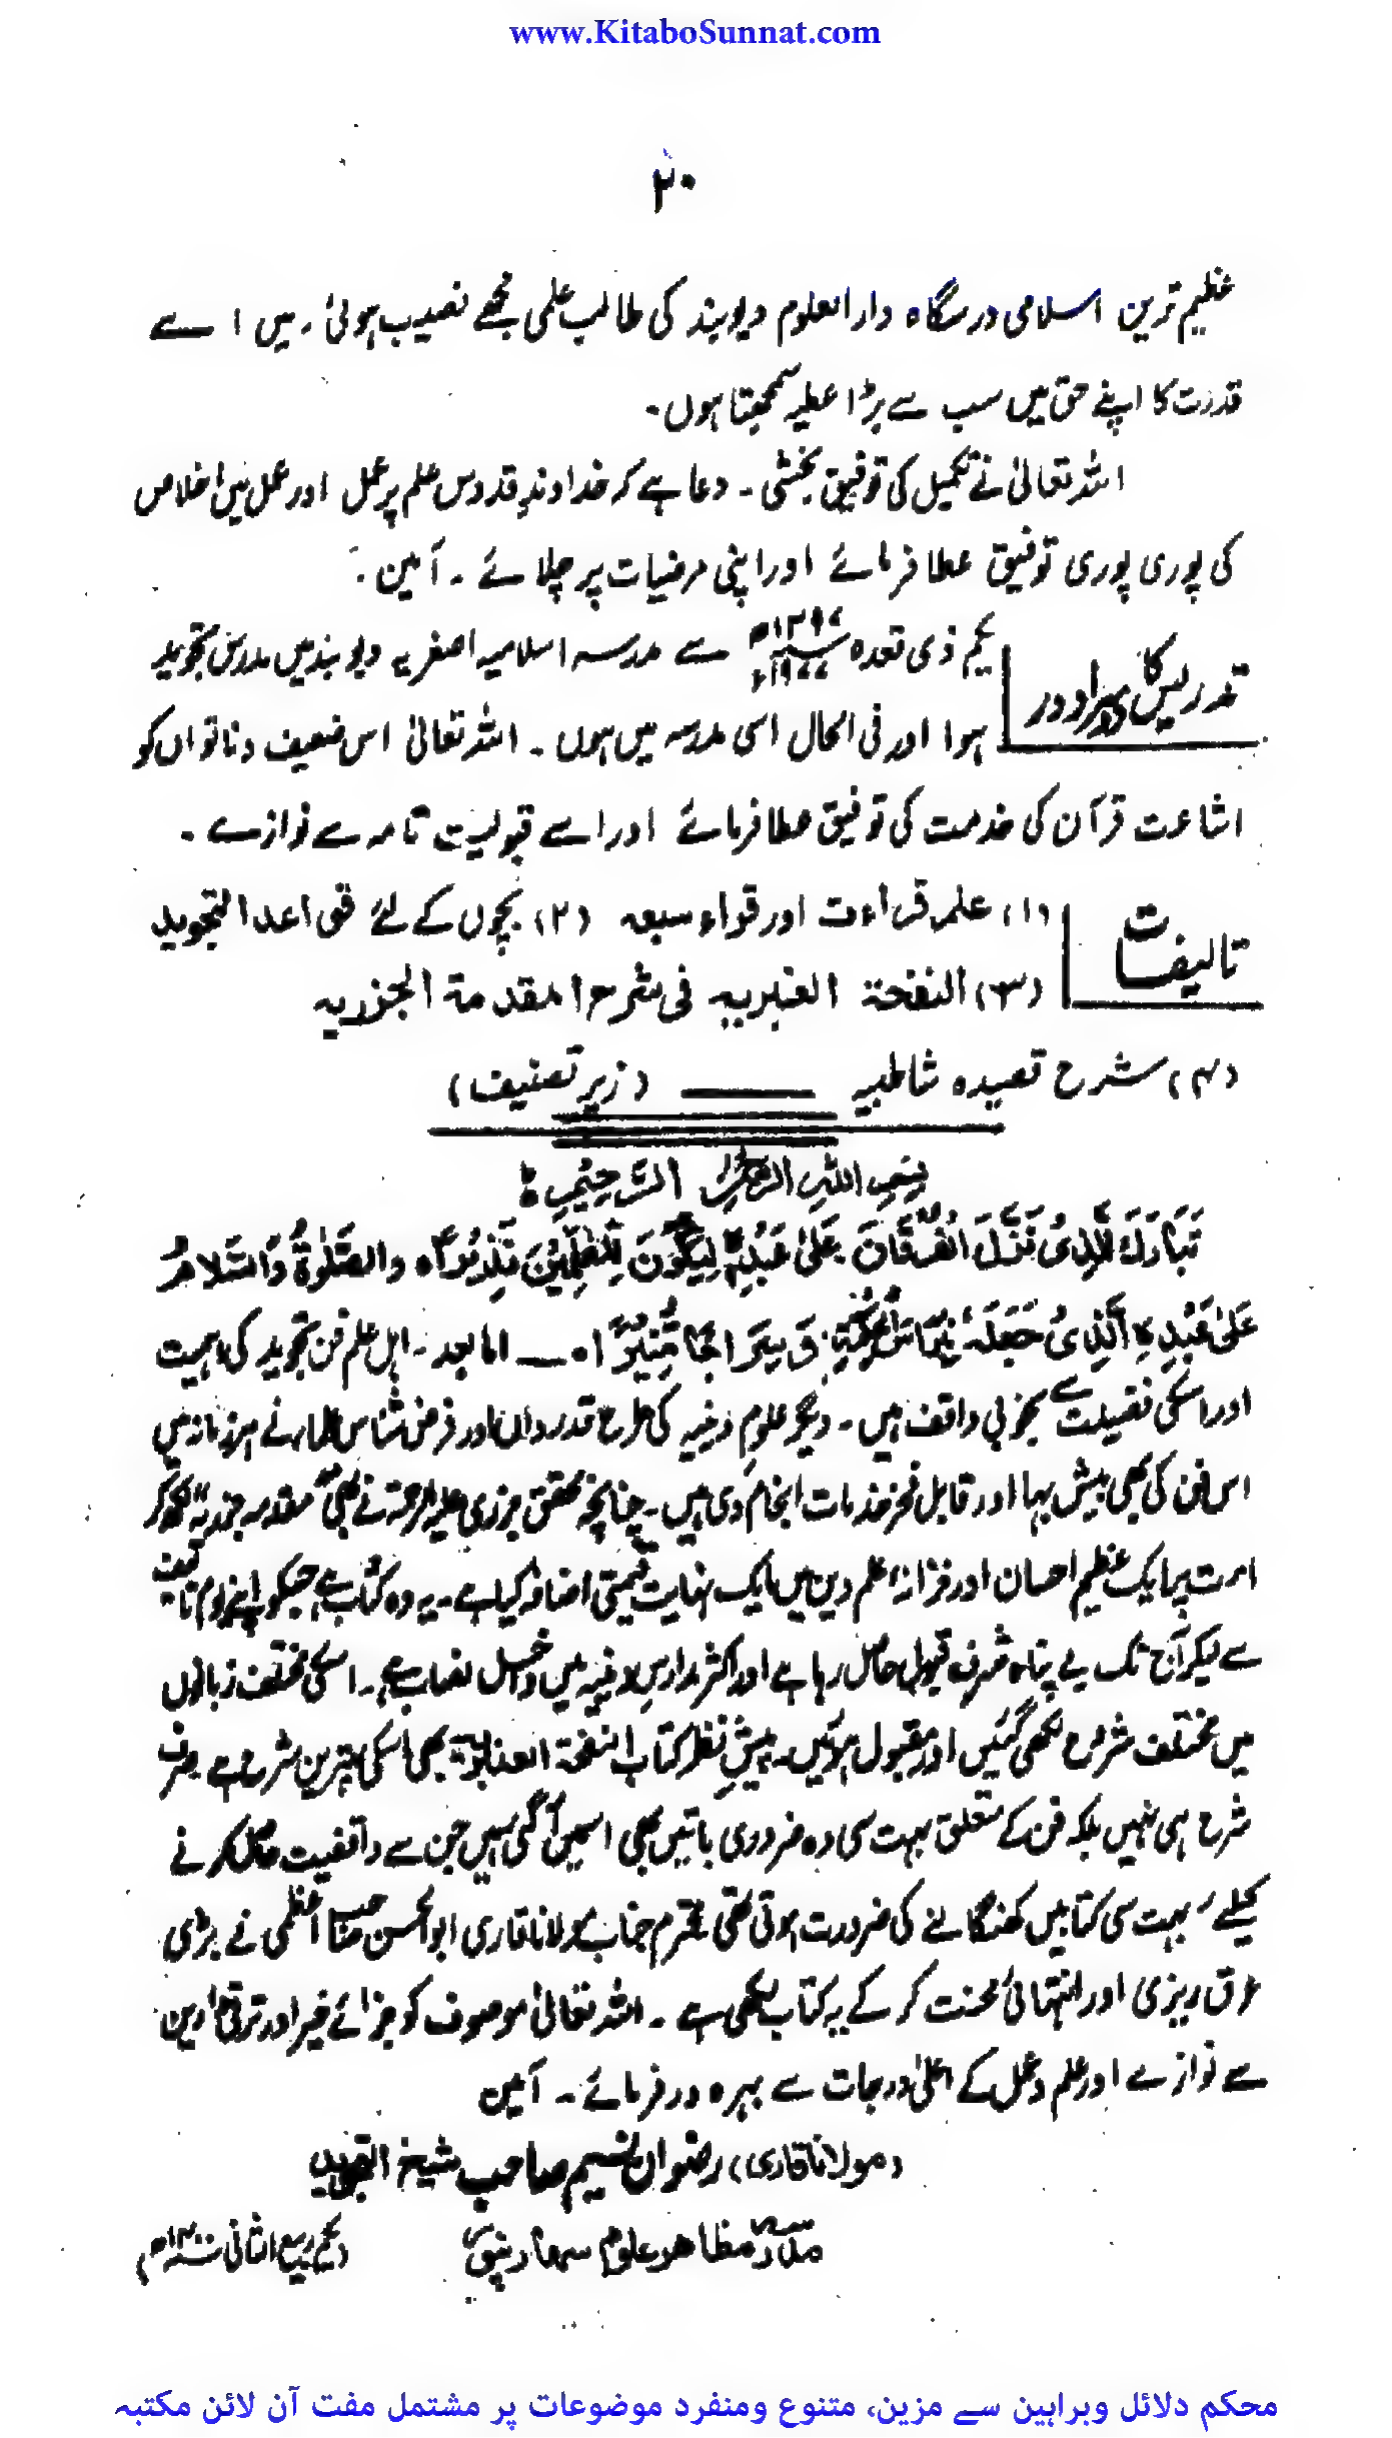 www.KitaboSunnat.com
۲۰
عظیم ترین اسلامی درسگاہ دارالعلوم دیوبند کی طالب علمی مجھے نصیب ہوئی۔ میں اسے
قدرت کا اپنے حق میں سب سے بڑا عطیہ سمجھتا ہوں۔
اللہ تعالیٰ نے تکمیل کی توفیق بخشی۔ دعا ہے کہ خداوند قدوس علم پر عمل اور عمل میں اخلاص
کی پوری پوری توفیق عطا فرمائے اور اپنی مرضیات پر چلائے۔ آمین۔
تدریس کا دوسرا دور
یکم ذی قعدہ ۱۳۹۷ھ ۱۹۷۷ء سے مدرسہ اسلامیہ اصغریہ دیوبند میں مدرس تجوید
ہوا اور فی الحال اسی مدرسہ میں ہوں۔ اللہ تعالیٰ اس ضعیف و ناتواں کو
اشاعت قرآن کی خدمت کی توفیق عطا فرمائے اور اسے قبولیت تامہ سے نوازے۔
تالیفات
(۱) علم قراءت اور قراء سبعہ (۲) بچوں کے لئے قواعد التجوید
(۳) النفخۃ العنبریہ فی شرح المقدمۃ الجزریہ
(۴) شرح قصیدہ شاطبیہ ــــــ (زیر تصنیف)
بِسْمِ اللهِ الرَّحْمٰنِ الرَّحِيْمِ ہ
تَبَارَكَ الَّذِىْ نَزَّلَ الْفُرْقَانَ عَلىٰ عَبْدِهٖ لِيَكُوْنَ لِلْعٰلَمِيْنَ نَذِيْرًا ہ والصَّلٰوةُ وَالسَّلَامُ
عَلىٰ عَبْدِهِ الَّذِىْ جَعَلَهٗ وَسِرَاجًا مُّنِيْرًا ہ ــــ اما بعد۔ اہل علم فن تجوید کی اہمیت
اور اسکی فضیلت سے بخوبی واقف ہیں۔ دیگر علوم دینیہ کی طرح قدرداں اور فرض شناس علماء نے ہر زمانہ میں
اس فن کی بھی بیش بہا اور قابل فخر خدمات انجام دی ہیں۔ چنانچہ محقق جزری علیہ الرحمۃ نے بھی "مقدمہ جزریہ" لکھ کر
امت پر ایک عظیم احسان اور خزانۂ علم دین میں ایک نہایت قیمتی اضافہ کیا ہے۔ یہ وہ کتاب ہے جسکو اپنے یوم تالیف
سے لیکر آج تک بے پناہ شرف قبول حاصل رہا ہے اور اکثر مدارس دینیہ میں داخل نصاب ہے۔ اسکی مختلف زبانوں
میں مختلف شروح لکھی گئیں اور مقبول ہوئیں۔ پیش نظر کتاب النفخۃ العنبریۃ بھی اسکی بہترین شرح ہے صرف
شرح ہی نہیں بلکہ فن کے متعلق بہت سی وہ ضروری باتیں بھی اسمیں آگئی ہیں جن سے واقفیت حاصل کرنے
کیلئے بہت سی کتابیں کھنگالنے کی ضرورت ہوتی تھی محترم جناب مولانا قاری ابوالحسن صاحب اعظمی نے بڑی
عرق ریزی اور انتہائی محنت کر کے یہ کتاب لکھی ہے۔ اللہ تعالیٰ موصوف کو جزائے خیر اور ترقی دارین
سے نوازے اور علم و عمل کے اعلیٰ درجات سے بہرہ ور فرمائے۔ آمین
(مولانا قاری) رضوان نسیم صاحب شیخ التجوید
مدرسہ مظاہر علوم سہارنپور (یکم ربیع الثانی ۱۴۰۰ھ)
محکم دلائل وبراہین سے مزین، متنوع ومنفرد موضوعات پر مشتمل مفت آن لائن مکتبہ